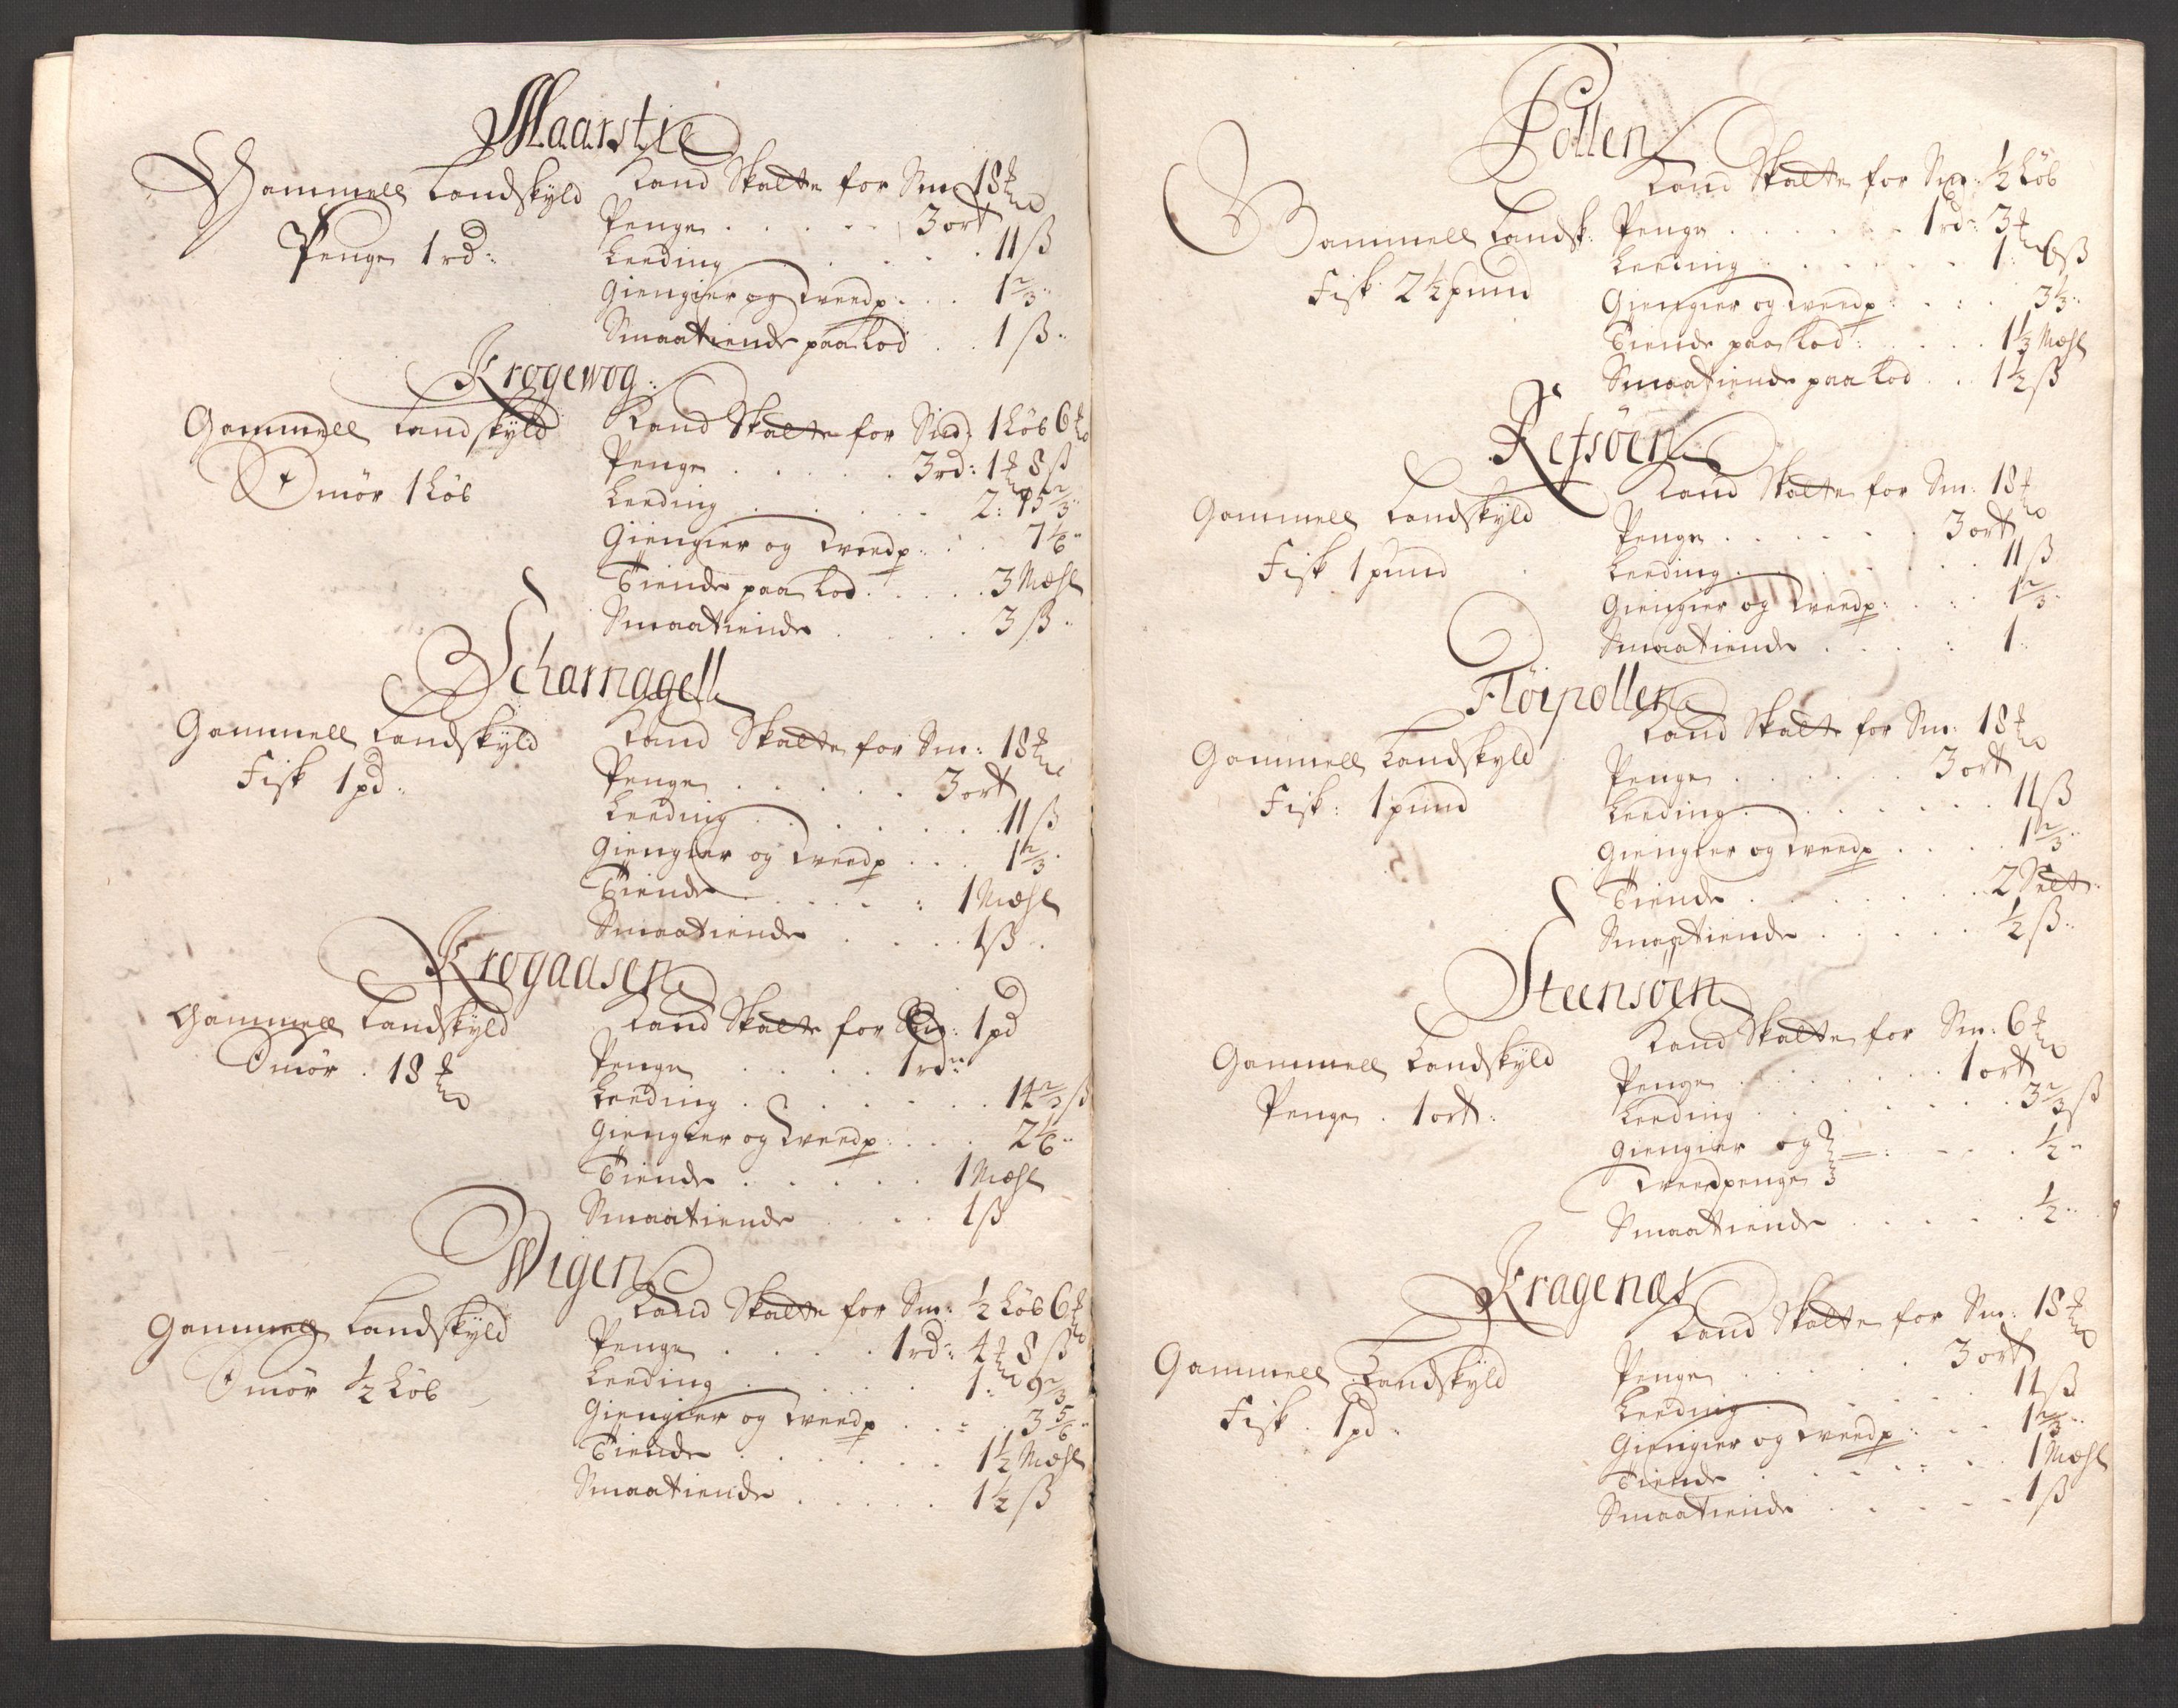 Maarstie
Gammell Landskyld
Penge 1 rd:
Land Skatte for Sm: 18 ℔
Penge . . . . . 3 ort
Leeding . . . . . 11 ß
Giengier og Treedp. . . 1 2/3 "
Smaatiende paa Lod . . 1 ß "
Krogewog:
Gammell Landskyld
Smör 1 Løb
Land Skatte for Sm: 1 Løb 6 ℔
Penge . . . . . 3 rd: 1 ℔ 8 ß
Leeding . . . . . 2: 15 2/3 "
Giengier og Treedp. . . 7 1/6 "
Tiende paa Lod . . . . . 3 Mæhl
Smaatiende . . . . . 3 ß "
Scharnagell
Gammell Landskyld
Fisk 1 pd:
Land Skatte for Sm: 18 ℔
Penge . . . . . 3 ort
Leeding . . . . . 11 ß
Giengier og Treedp . . . 1 2/3 "
Tiende . . . . : 1 Mæhl
Smaatiende . . . . 1 ß "
Krogaasen
Gammell Landskyld
Smör . 18 ℔
Land Skatte for Sm: 1 pd
Penge . . . . . 1 rd "
Leeding . . . . . . 14 2/3 ß
Giengier og Treedp: . . . 2 1/6 "
Tiende . . . . . 1 Mæhl
Smaatiende . . . . 1 ß
Wigen
Gammell Landskyld
Smör 1/2 Løb
Land Skatte for Sm: 1/2 Løb 6 ℔
Penge . . . . . 1 rd: 4 ℔ 8 ß
Leeding . . . . . 1: 9 2/3
Giengier og Treedp . . . 3 5/6 "
Tiende . . . . . . 1 1/2 Mæhl
Smaatiende . . . . . 1 1/2 ß
Pollen
Gammell Landsk:
Fisk 2 1/2 pund
Land Skatte for Sm: 1/2 Løb
Penge . . . . . . 1 rd: 3 ℔
Leeding . . . . . . 1: 6 ß
Giengier og Treedp: . . . 3 1/3 "
Tiende paa Lod: . . . . . 1 1/3 Mæhl
Smaatiende paa Lod . . 1 1/2 ß
Refsöen
Gammell Landskyld
Fisk 1 pund
Land Skatte for Sm: 18 ℔
Penge . . . . . . 3 ort
Leeding . . . . . . . 11 ß
Giengier og Treedp: . . . 1 2/3 "
Smaatiende . . . . : 1 "
Flöipollen
Gammell Landskyld
Fisk: 1 pund
Land Skatte for Sm: 18 ℔
Penge . . . . . . 3 ort
Leeding . . . . . . 11 ß
Giengier og Treedp . . . . 1 2/3 "
Tiende . . . . . . . 2 Selt:
Smaatiende . . . . . 1/2 ß "
Steensöen
Gammell Landskyld
Penge . 1 ort:
Land Skatte for Sm: 6 ℔
Penge . . . . . . . 1 ort
Leeding . . . . . . . 3 2/3 ß
Giengier og
Treedpenge . . . . 1/2 "
Smaatiende . . . . . 1/2 "
Kragenæs
Gammell Landskyld
Fisk . 1 pd:
Land Skatte for Sm: 18 ℔
Penge . . . . . . 3 ort
Leeding . . . . . . 11 ß
Giengier og Treedp: . . . 1 2/3 "
Tiende . . . . . . 1 Mæhl
Smaatiende . . . . . 1 ß